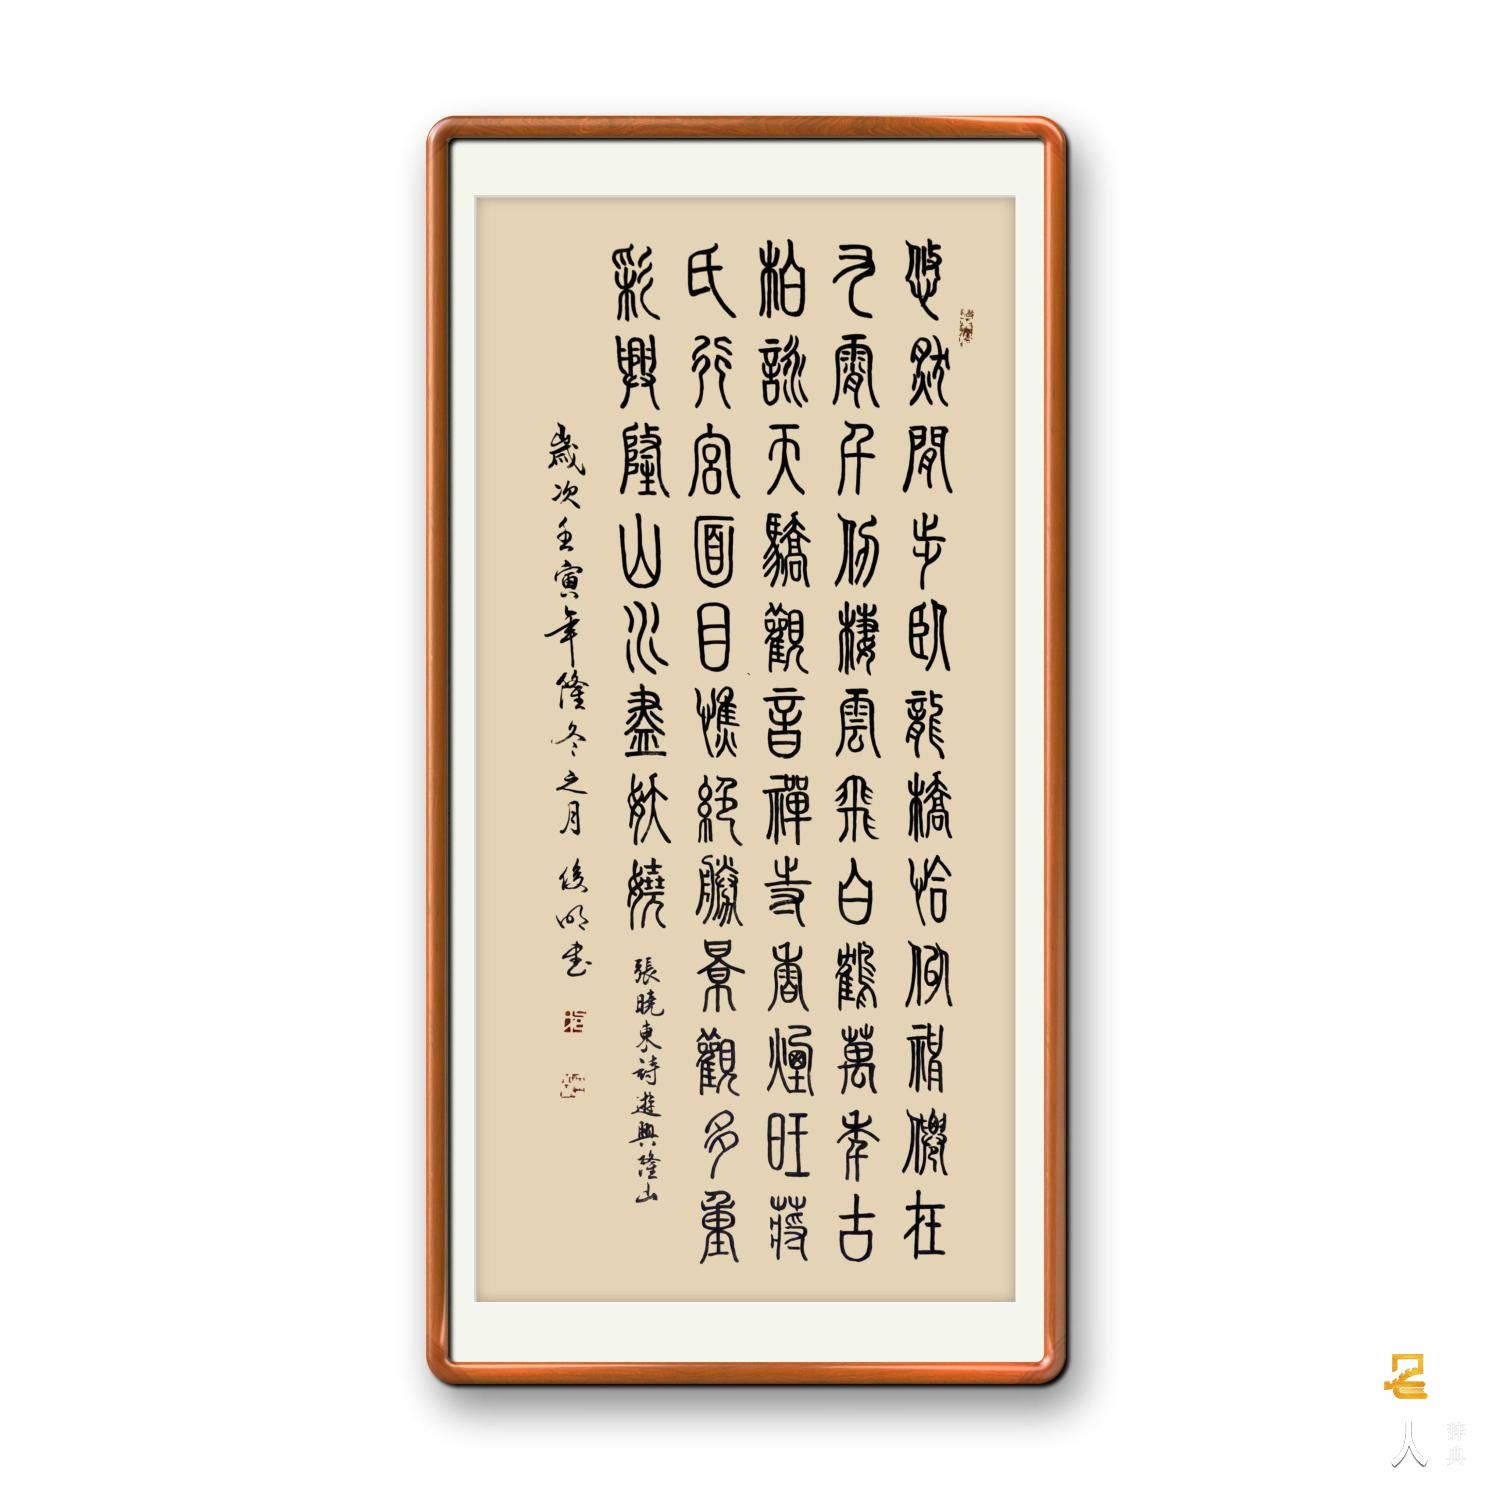 悠然閒步臥龍橋恰似神僊在
九霄千仞棲雲飛白鶴萬年古
柏詠天驕觀音禪寺香煙旺蔣
氏行宮面目憔絕勝景觀多重
彩興隆山水盡妖嬈 張曉東詩遊興隆山
歲次壬寅年隆冬之月 俊明書
人
辞典